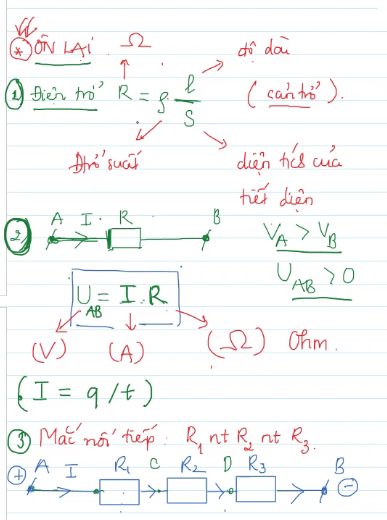 (*) ÔN LẠI. Ω độ dài
(1) Điện trở R = ρ l/S (cản trở).
Đtrở suất diện tích của
tiết diện
(2) A I R B V_A > V_B
U_AB > 0
U_AB = I.R
(V) (A) (Ω) Ohm.
(I = q/t)
(3) Mắc nối tiếp: R₁ nt R₂ nt R₃.
+ A I R₁ C R₂ D R₃ B −